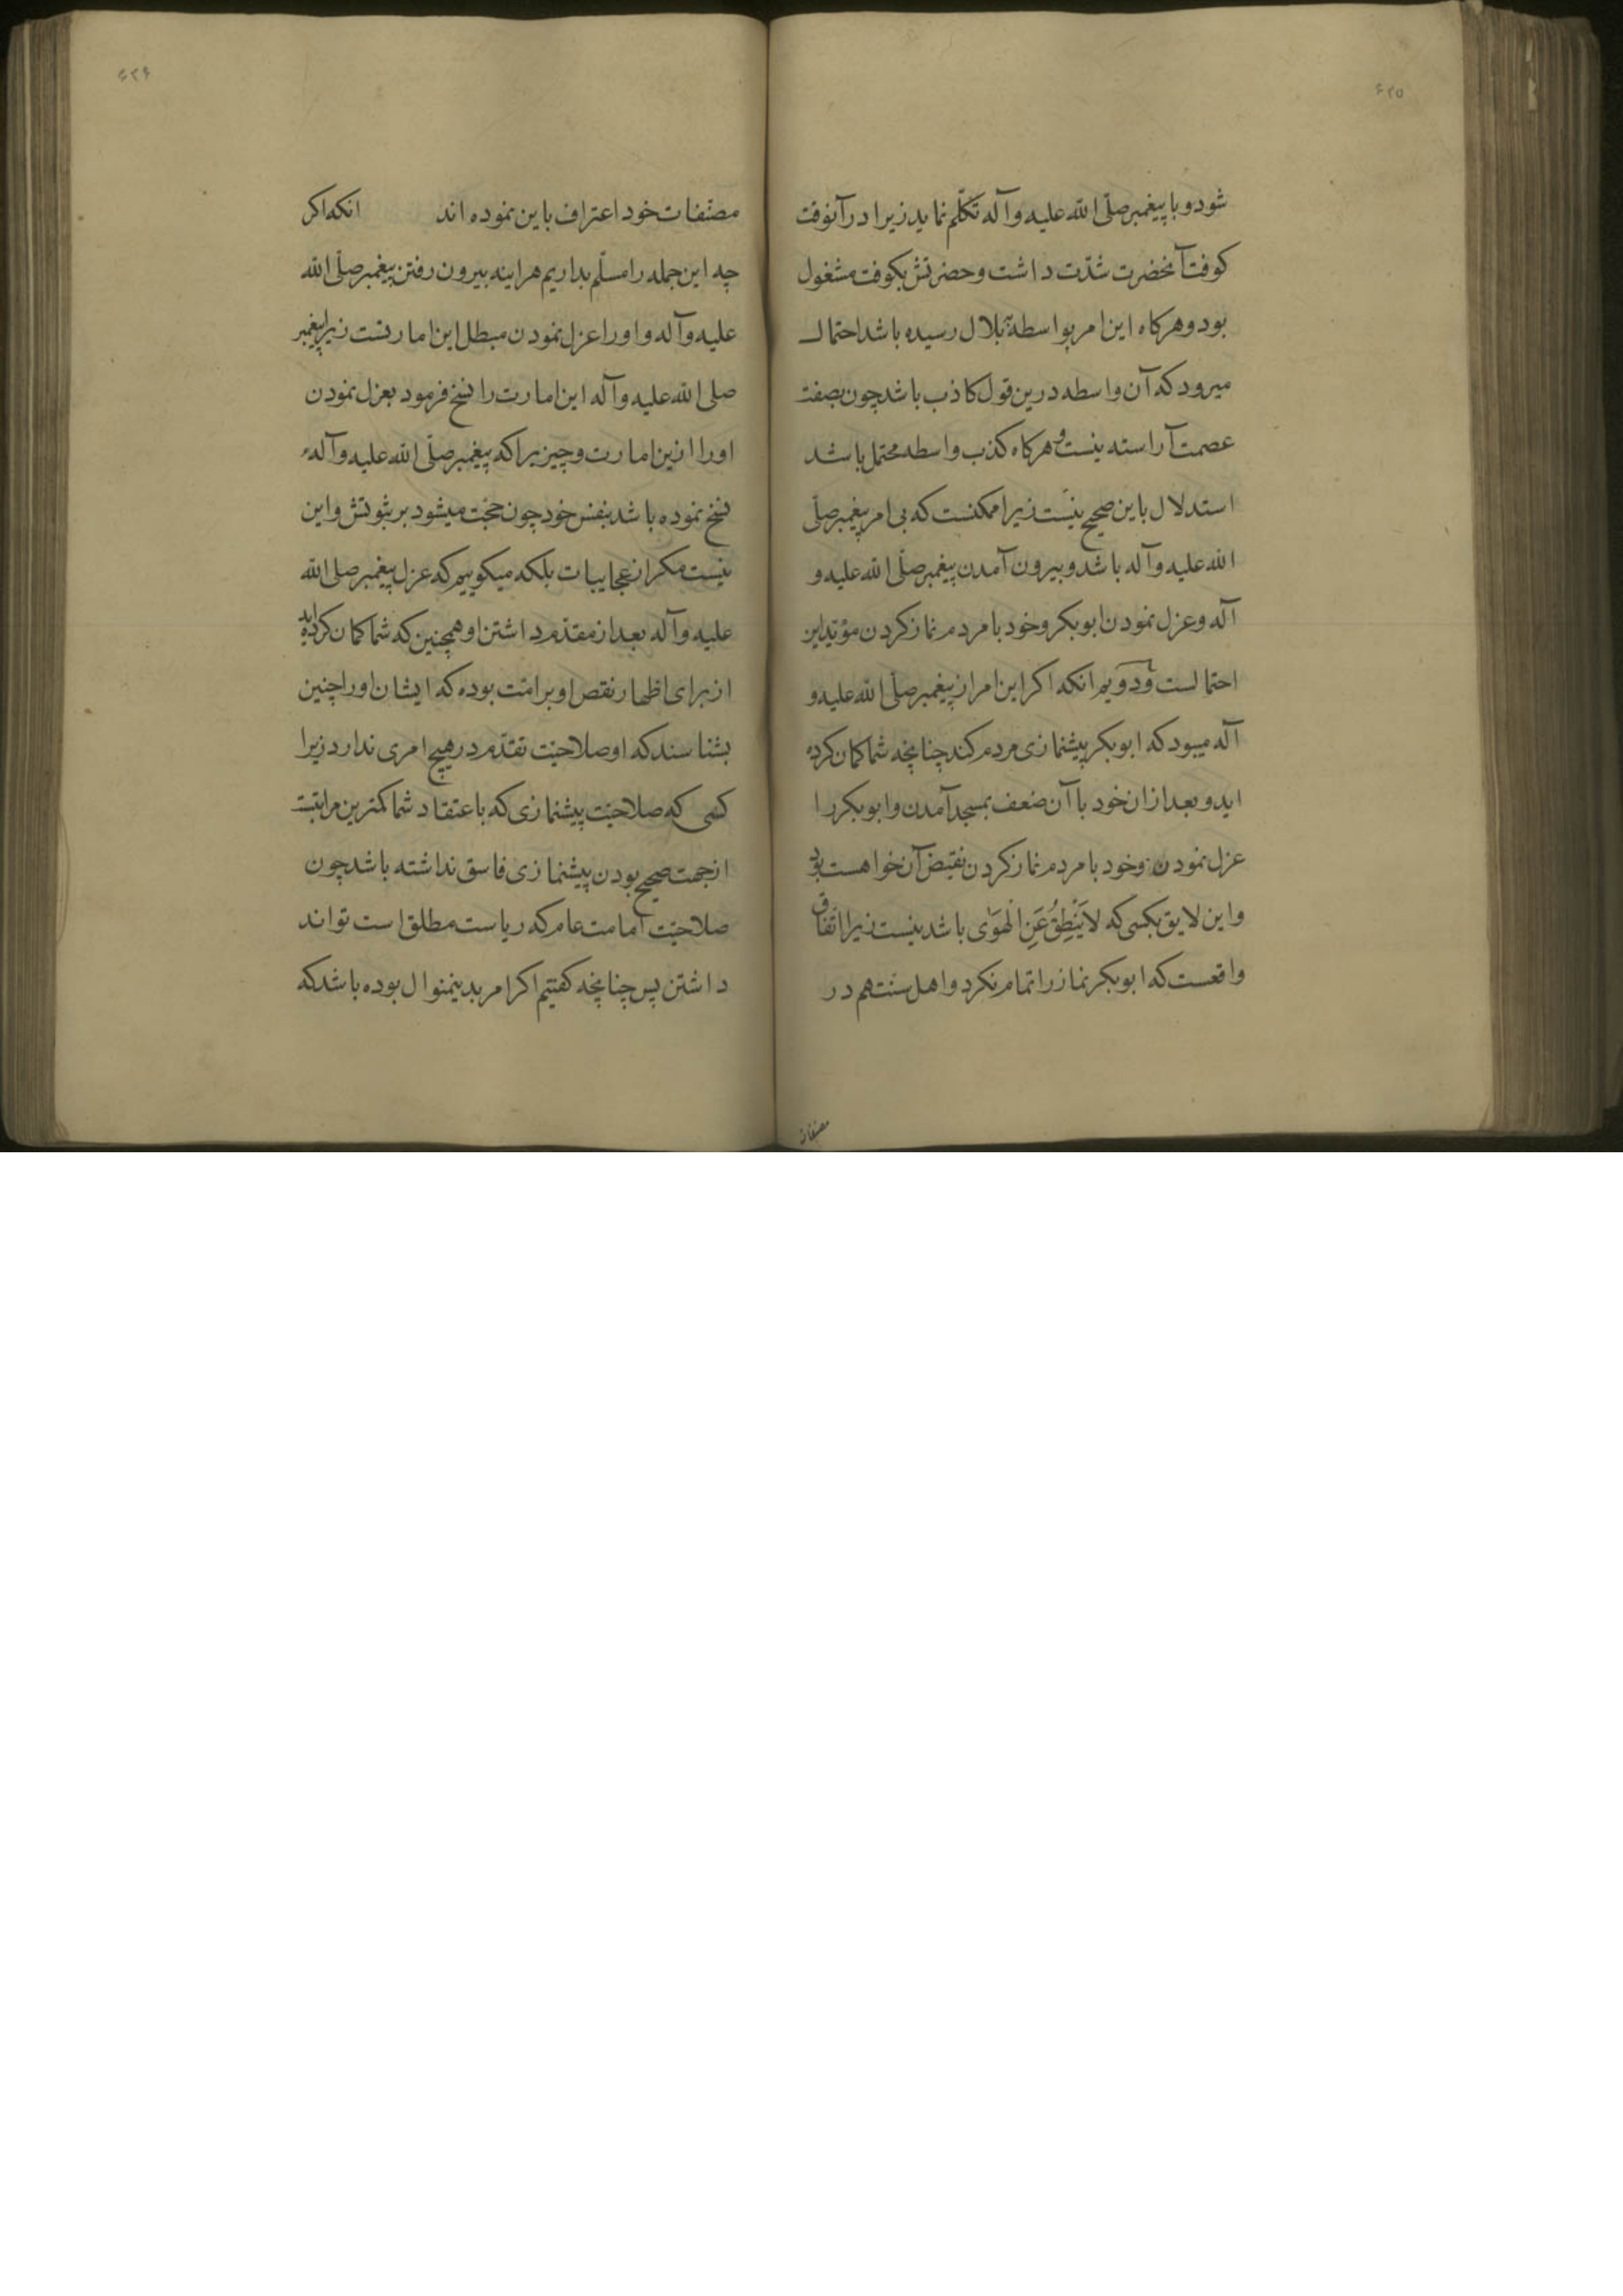 ۶۲۵
شود و با پیغمبر صلّی الله علیه و آله تکلّم نماید زیرا در آنوقت
کوفت آنحضرت شدّت داشت و حضرتش بکوفت مشغول
بود و هرکاه این امر بواسطهٔ بلال رسیده باشد احتمال
میرود که آن واسطه درین قول کاذب باشد چون بصفت
عصمت آراسته نیست و هرکاه کذب واسطه محتمل باشد
استدلال باین صحیح نیست زیرا ممکنست که بی امر پیغمبر صلّی
الله علیه و آله باشد و بیرون آمدن پیغمبر صلّی الله علیه و
آله و عزل نمودن ابوبکر و خود با مردم نماز کردن مؤیّد این
احتمالست و دویم انکه اکر این امر از پیغمبر صلّی الله علیه و
آله میبود که ابوبکر پیشنمازی مردم کند چنانچه شما کمان کرده
اید و بعد ازان خود با آن ضعف بمسجد آمدن و ابوبکر را
عزل نمودن و خود با مردم نماز کردن نقیض آن خواهست بود
و این لایق بکسی که لاَیَنْطِقُ عَنِ الْهَوَی باشد نیست زیرا اتّفاق
واقعست که ابوبکر نماز را تمام نکرد و اهل سنّت هم در
مصنفات
۶۲۶
مصنّفات خود اعتراف باین نموده اند انکه اکر
چه این جمله را مسلّم بداریم هراینه بیرون رفتن پیغمبر صلّی الله
علیه و آله و او را عزل نمودن مبطل این امارتست زیرا پیغمبر
صلی الله علیه و آله این امارت را نسخ فرمود بعزل نمودن
او را ازین امارت و چیزیرا که پیغمبر صلّی الله علیه و آله
نسخ نموده باشد بنفس خود چون حجّت میشود بر ثبوتش و این
نیست مکر از عجایبات بلکه میکوییم که عزل پیغمبر صلی الله
علیه و آله بعد از مقدّم داشتن او همچنین که شما کمان کرده اید
از برای اظهار نقص او بر امّت بوده که ایشان او را چنین
بشناسند که او صلاحیّت تقدّم در هیچ امری ندارد زیرا
کسی که صلاحیّت پیشنمازی که باعتقاد شما کمترین مراتبست
از جهت صحیح بودن پیشنمازی فاسق نداشته باشد چون
صلاحیّت امامت عام که ریاست مطلق است تواند
داشتن پس چنانچه کفتیم اکر امر بدینمنوال بوده باشد که